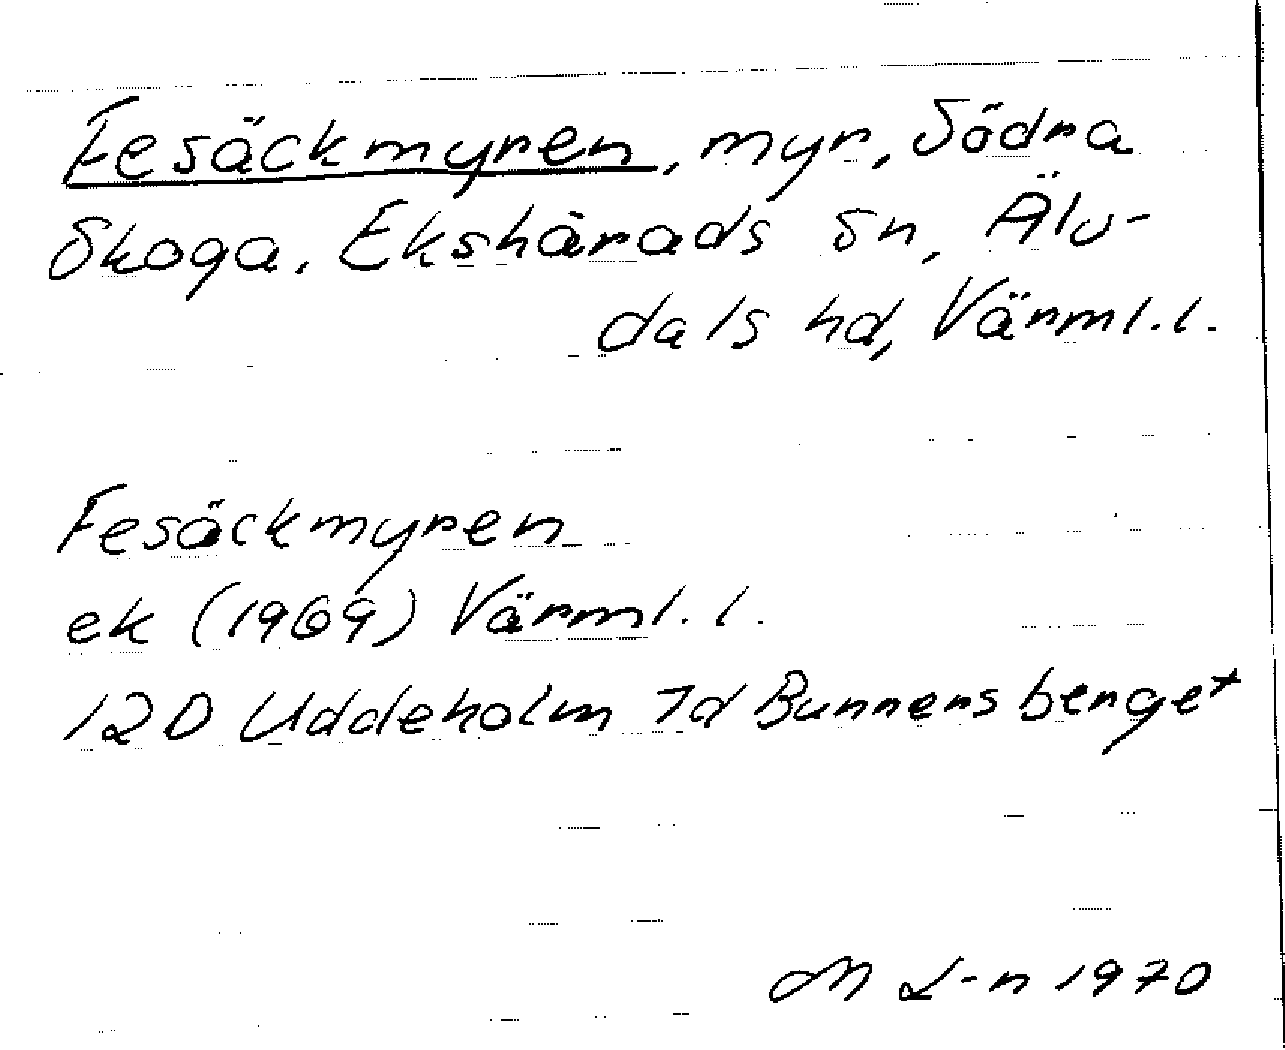 Fesäckmyren, myr, Södra
Skoga, Ekshärads sn, Älv-
dals hd, Värml.l.
Fesäckmyren
ek (1969) Värml.l.
12D Uddeholm 7d Burrensberget
M L-n 1970